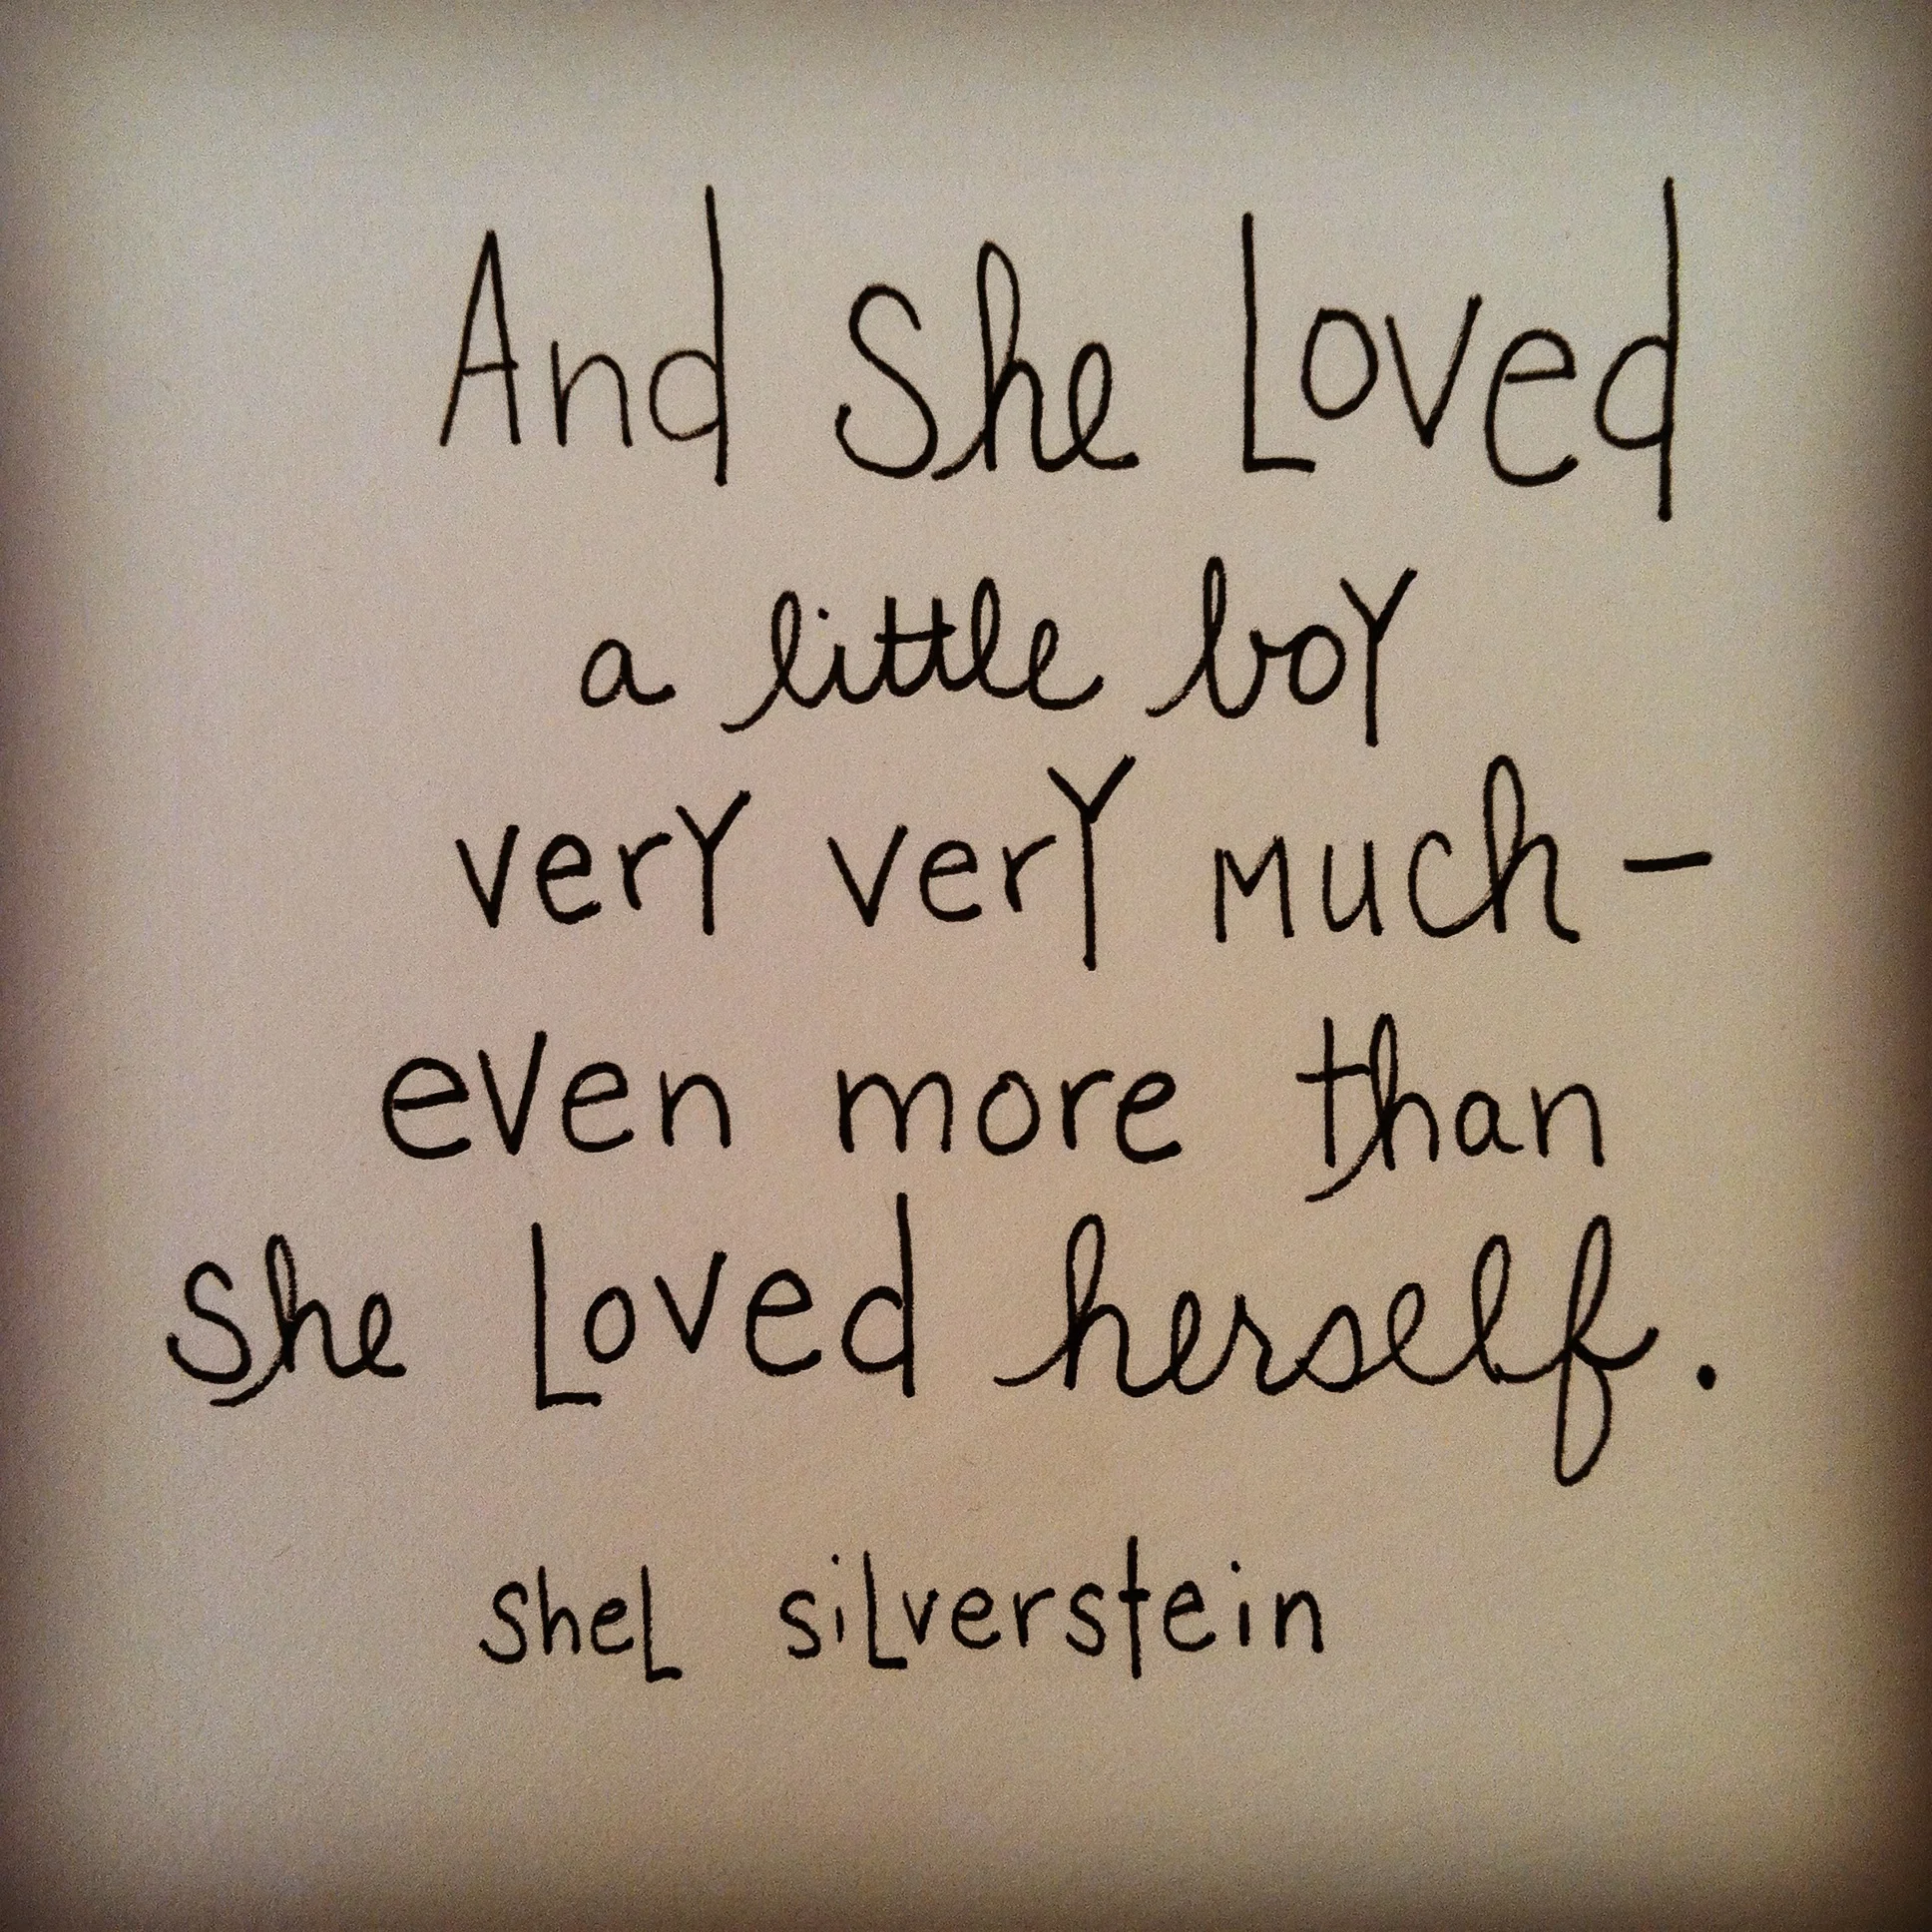 And She Loved
a little boy
very very much-
even more than
She Loved herself.
Shel silverstein